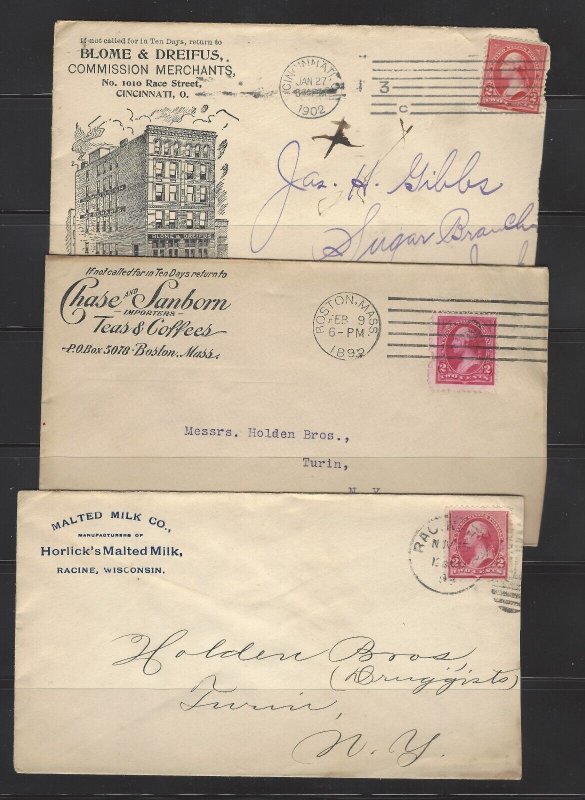 If not called for in Ten Days, return to
BLOME & DREIFUS,
COMMISSION MERCHANTS,
No. 1010 Race Street,
CINCINNATI, O.
BLOME & DREIFUS
CINCINNATI
JAN 27
1902
3
C
2 2
TWO CENTS
Jas. H. Gibbs
Sugar Branch
If not called for in Ten Days return to
Chase AND Sanborn
IMPORTERS
Teas & Coffees
P.O. Box 5078 Boston, Mass.
BOSTON, MASS.
FEB 9
6-PM
1892
2 2
TWO CENTS
Messrs. Holden Bros.,
Turin,
N. Y.
MALTED MILK CO.,
MANUFACTURERS OF
Horlick's Malted Milk,
RACINE, WISCONSIN.
2 2
TWO CENTS
Holden Bros,
(Druggists)
Turin,
N. Y.